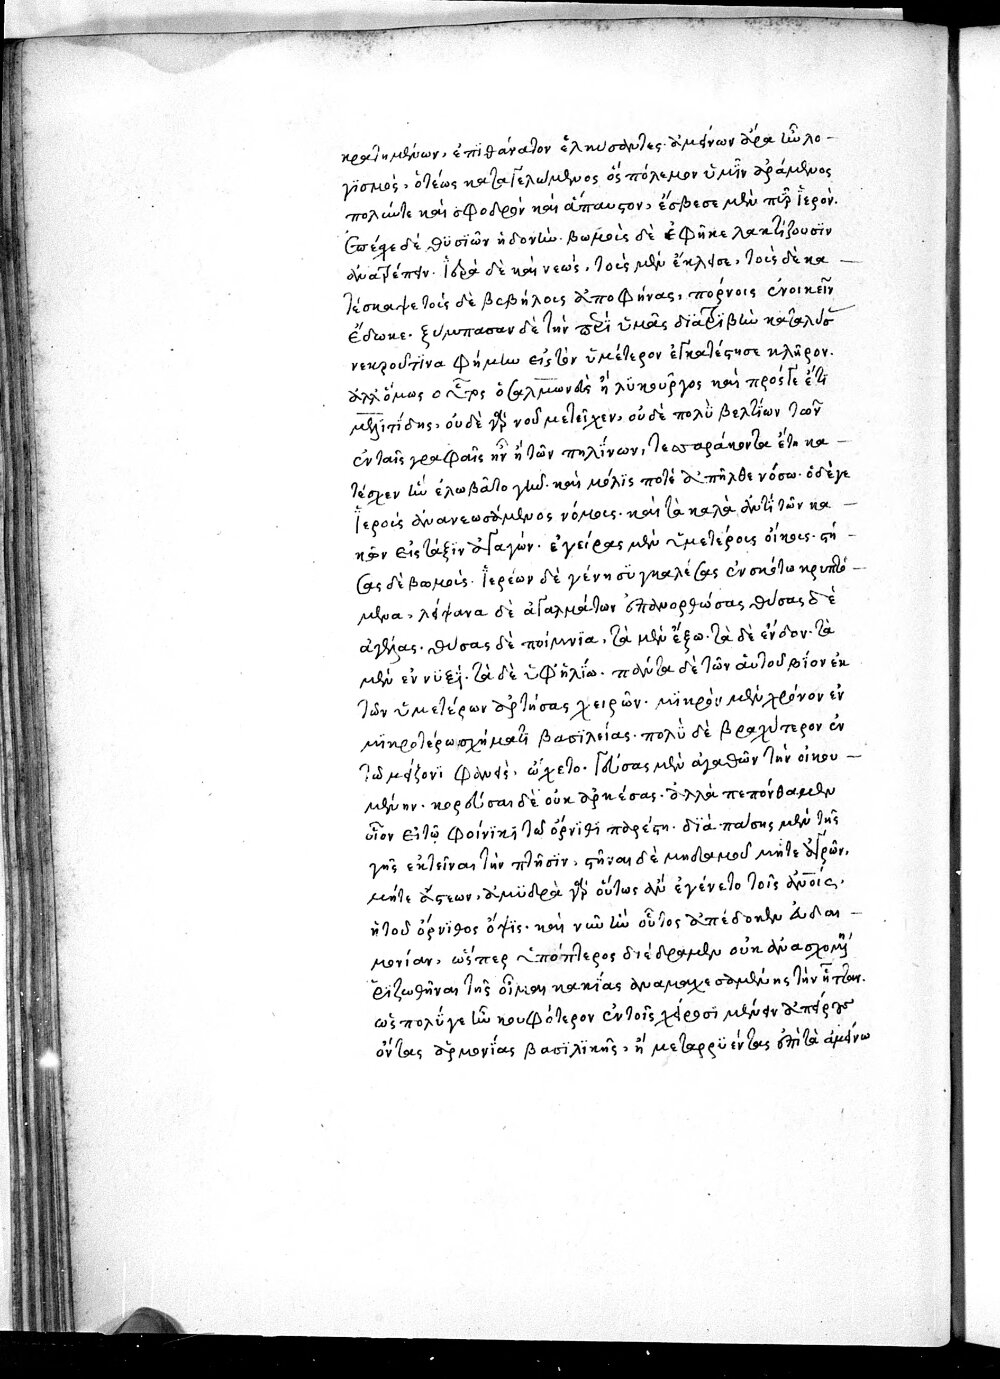 κρατημένων, ἐπὶ θάνατον ἑλκυσάντες· ἀμείνων ἄρα ἦν λο-
γισμὸς, ὁ τέως καταγελώμενος ὃς πόλεμον ὑμῖν ἀράμενος
πολύν τε καὶ σφοδρὸν καὶ ἄπαυστον, ἔσβεσε μὲν πῦρ ἱερὸν.
ἔπαυσε δὲ θυσιῶν ἡδονὴν. βωμοὺς δὲ ἐφῆκε λακτίζουσιν
ἀνατρέπειν. ἱερὰ δὲ καὶ νεὼς, τοὺς μὲν ἔκλεισε, τοὺς δὲ κα-
τέσκαψε τοὺς δὲ βεβήλους ἀποφήνας, πόρνοις ἐνοικεῖν
ἔδωκε. ξύμπασαν δὲ τὴν περὶ ὑμᾶς διατριβὴν καταλύσας
νεκροῦ τινα εἰς τὸν ὑμέτερον ἐγκατέστησε κλῆρον.
ἀλλ' ὅμως ὁ ὁ Σαλμωνεὺς ἢ Λυκοῦργος καὶ πρός γε ἔτι
Μελιτίδης, οὐδὲ γὰρ νοῦ μετεῖχεν, οὐδὲ πολὺ βελτίων τῶν
ἐν ταῖς γραφαῖς ἦν ἢ τῶν πηλίνων, τεσσαράκοντα ἔτη κα-
τέσχεν ἣν ἐλωβᾶτο γῆν. καὶ μόλις ποτὲ ἀπῆλθε νόσῳ. ὁ δέ γε
ἱεροὺς ἀνανεωσάμενος νόμους. καὶ τὰ καλὰ ἀντὶ τῶν κα-
κῶν εἰς τάξιν ἀγαγών. ἐγείρας μὲν ὑμετέρους οἴκους. στή-
σας δὲ βωμοὺς. ἱερέων δὲ γένη συγκαλέσας ἐν σκότῳ κρυπτό-
μενα, λείψανα δὲ ἀγαλμάτων ἐπανορθώσας θύσας δὲ
ἀγέλας. θύσας δὲ ποίμνια, τὰ μὲν ἔξω. τὰ δὲ ἔνδον. τὰ
μὲν ἐν νυξί. τὰ δὲ ὑφ' ἡλίῳ. πάντα δὲ τὸν αὐτοῦ βίον ἐκ
τῶν ὑμετέρων ἀρτήσας χειρῶν. μικρὸν μὲν χρόνον ἐν
μικροτέρῳ σχήματι βασιλείας. πολὺ δὲ βραχύτερον ἐν
τῷ μείζονι φανεὶς, ᾤχετο. γεύσας μὲν ἀγαθῶν τὴν οἰκου-
μένην. κορέσαι δὲ οὐκ ἀρκέσας. ἀλλὰ πεπόνθαμεν
οἷον εἰ τῷ Φοίνικι τῷ ὄρνιθι παρέστη. διὰ πάσης μὲν τῆς
γῆς ἐκτεῖναι τὴν πτῆσιν, στῆναι δὲ μηδαμοῦ μήτε ἀγρῶν,
μήτε ἄστεων. ἀμυδρὰ γὰρ οὕτως ἂν ἐγένετο τοῖς ἀνθρώποις,
ἡ τοῦ ὄρνιθος ὄψις. καὶ νῦν ἣν οὗτος ἀπέδωκεν εὐδαι-
μονίαν, ὥσπερ ὑπόπτερος διέδραμεν οὐκ ἀνασχομένη
ῥιζωθῆναι τῆς οἶμαι κακίας ἀναμαχεσαμένης τὴν ἧτταν.
ὡς πολύ γε ἦν κουφότερον ἐν τοῖς χείροσι μένειν ἀπείρους
ὄντας ἁρμονίας βασιλικῆς, ἢ μεταρρυέντας ἐπὶ τὰ ἀμείνω